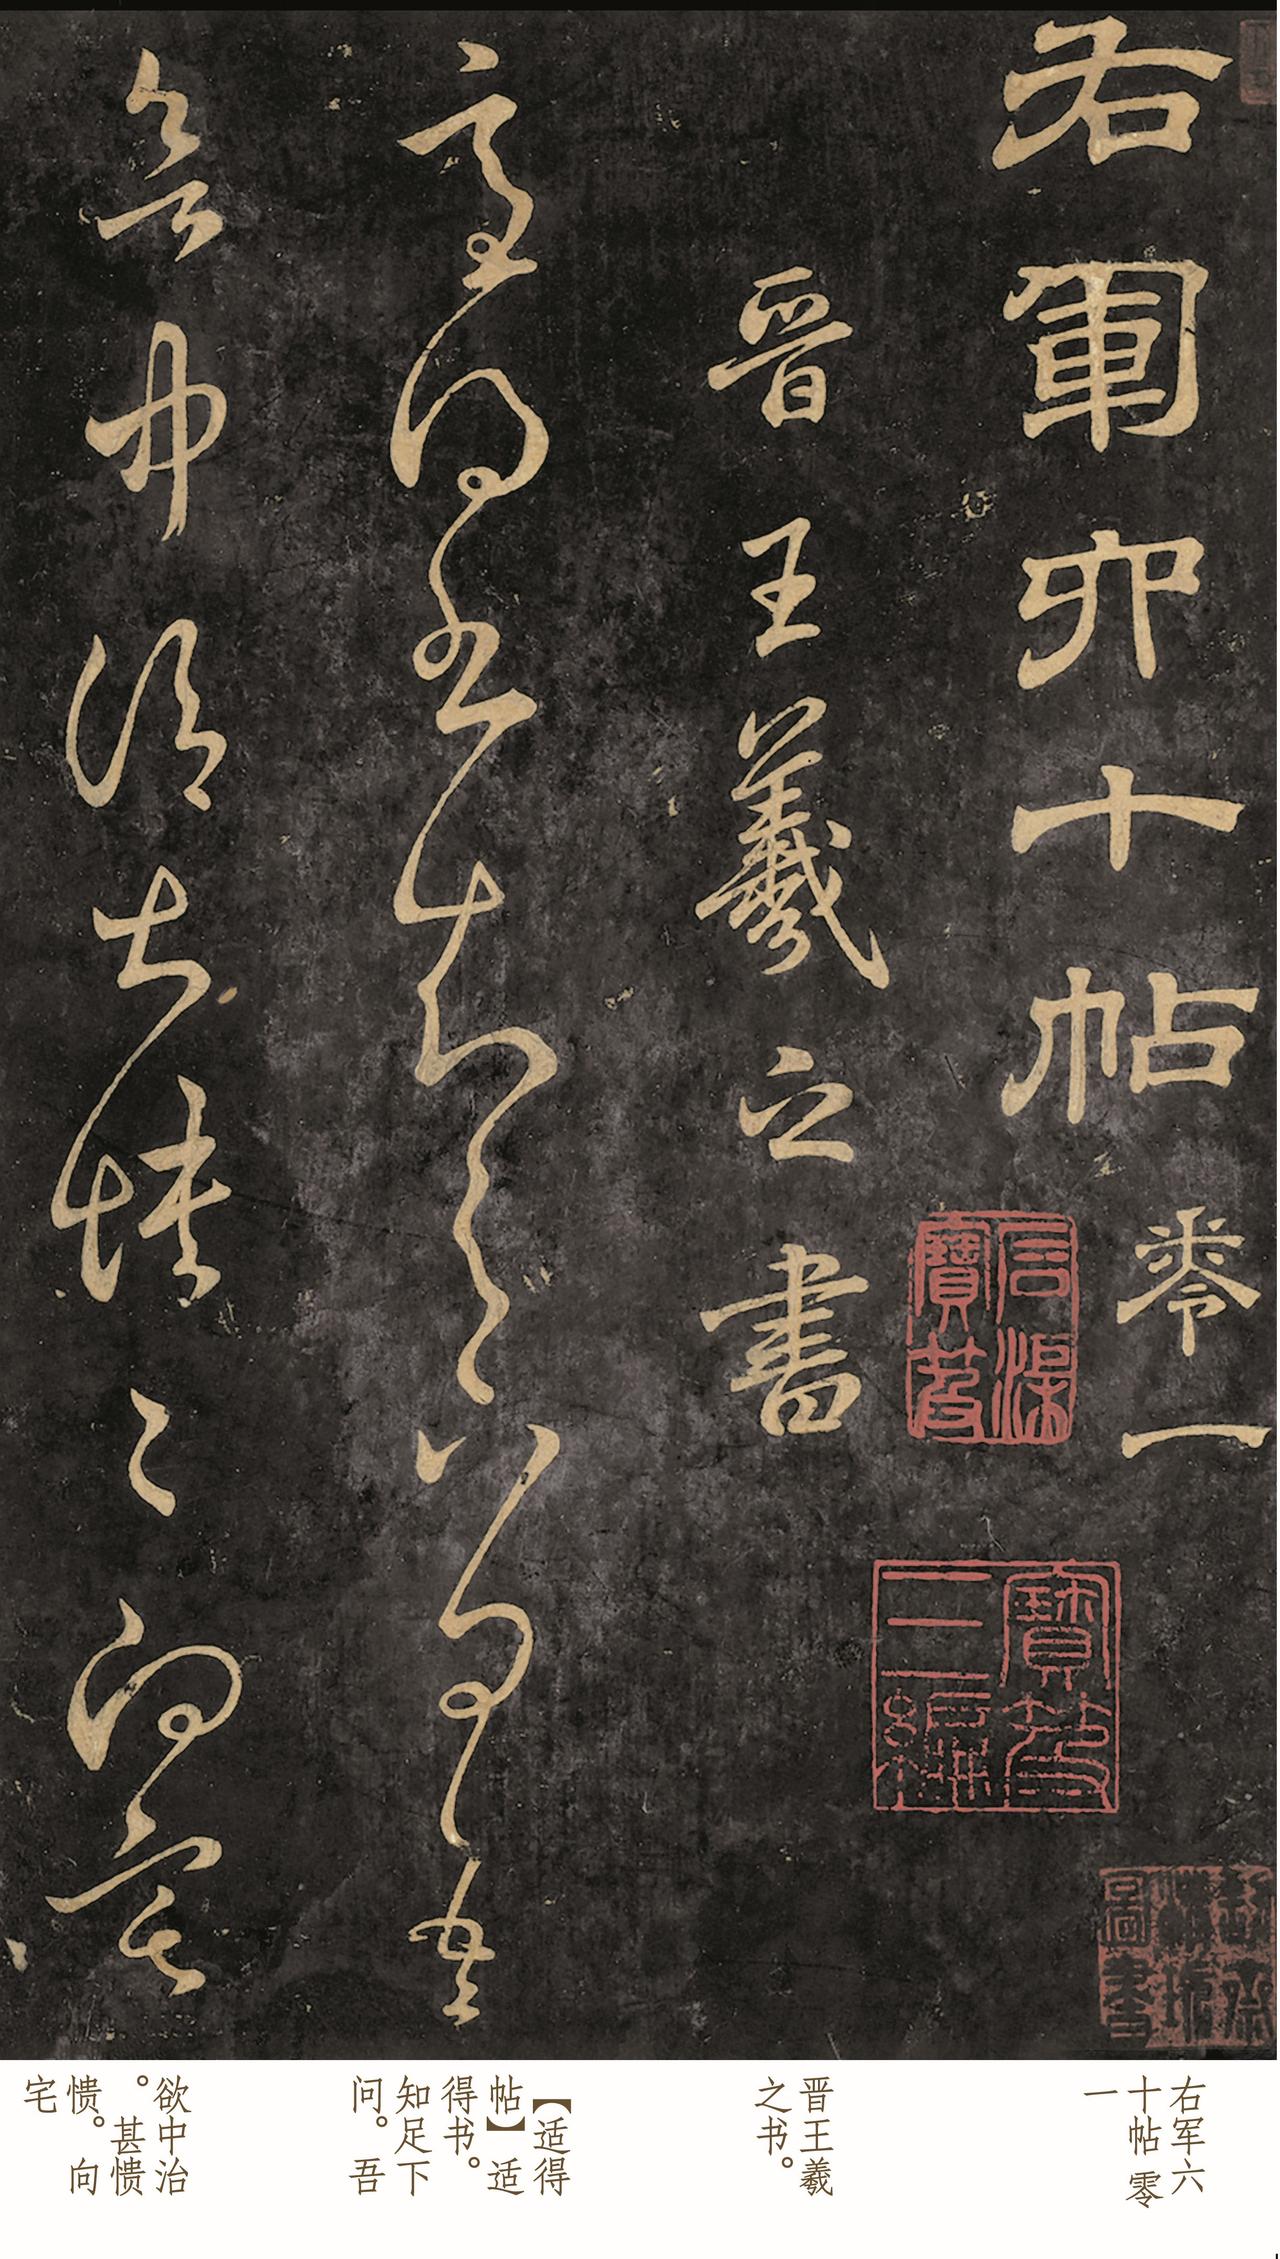 右軍卯十帖零一
石渠寶笈
寶笈三編
晉王羲之書
適得書知足下問吾
欲中治甚憒々向宅
右军六
十帖 零
一
晋王羲
之书。
【适得
帖】适
得书。
知足下
问。吾
欲中治
。甚愦
愦。向
宅